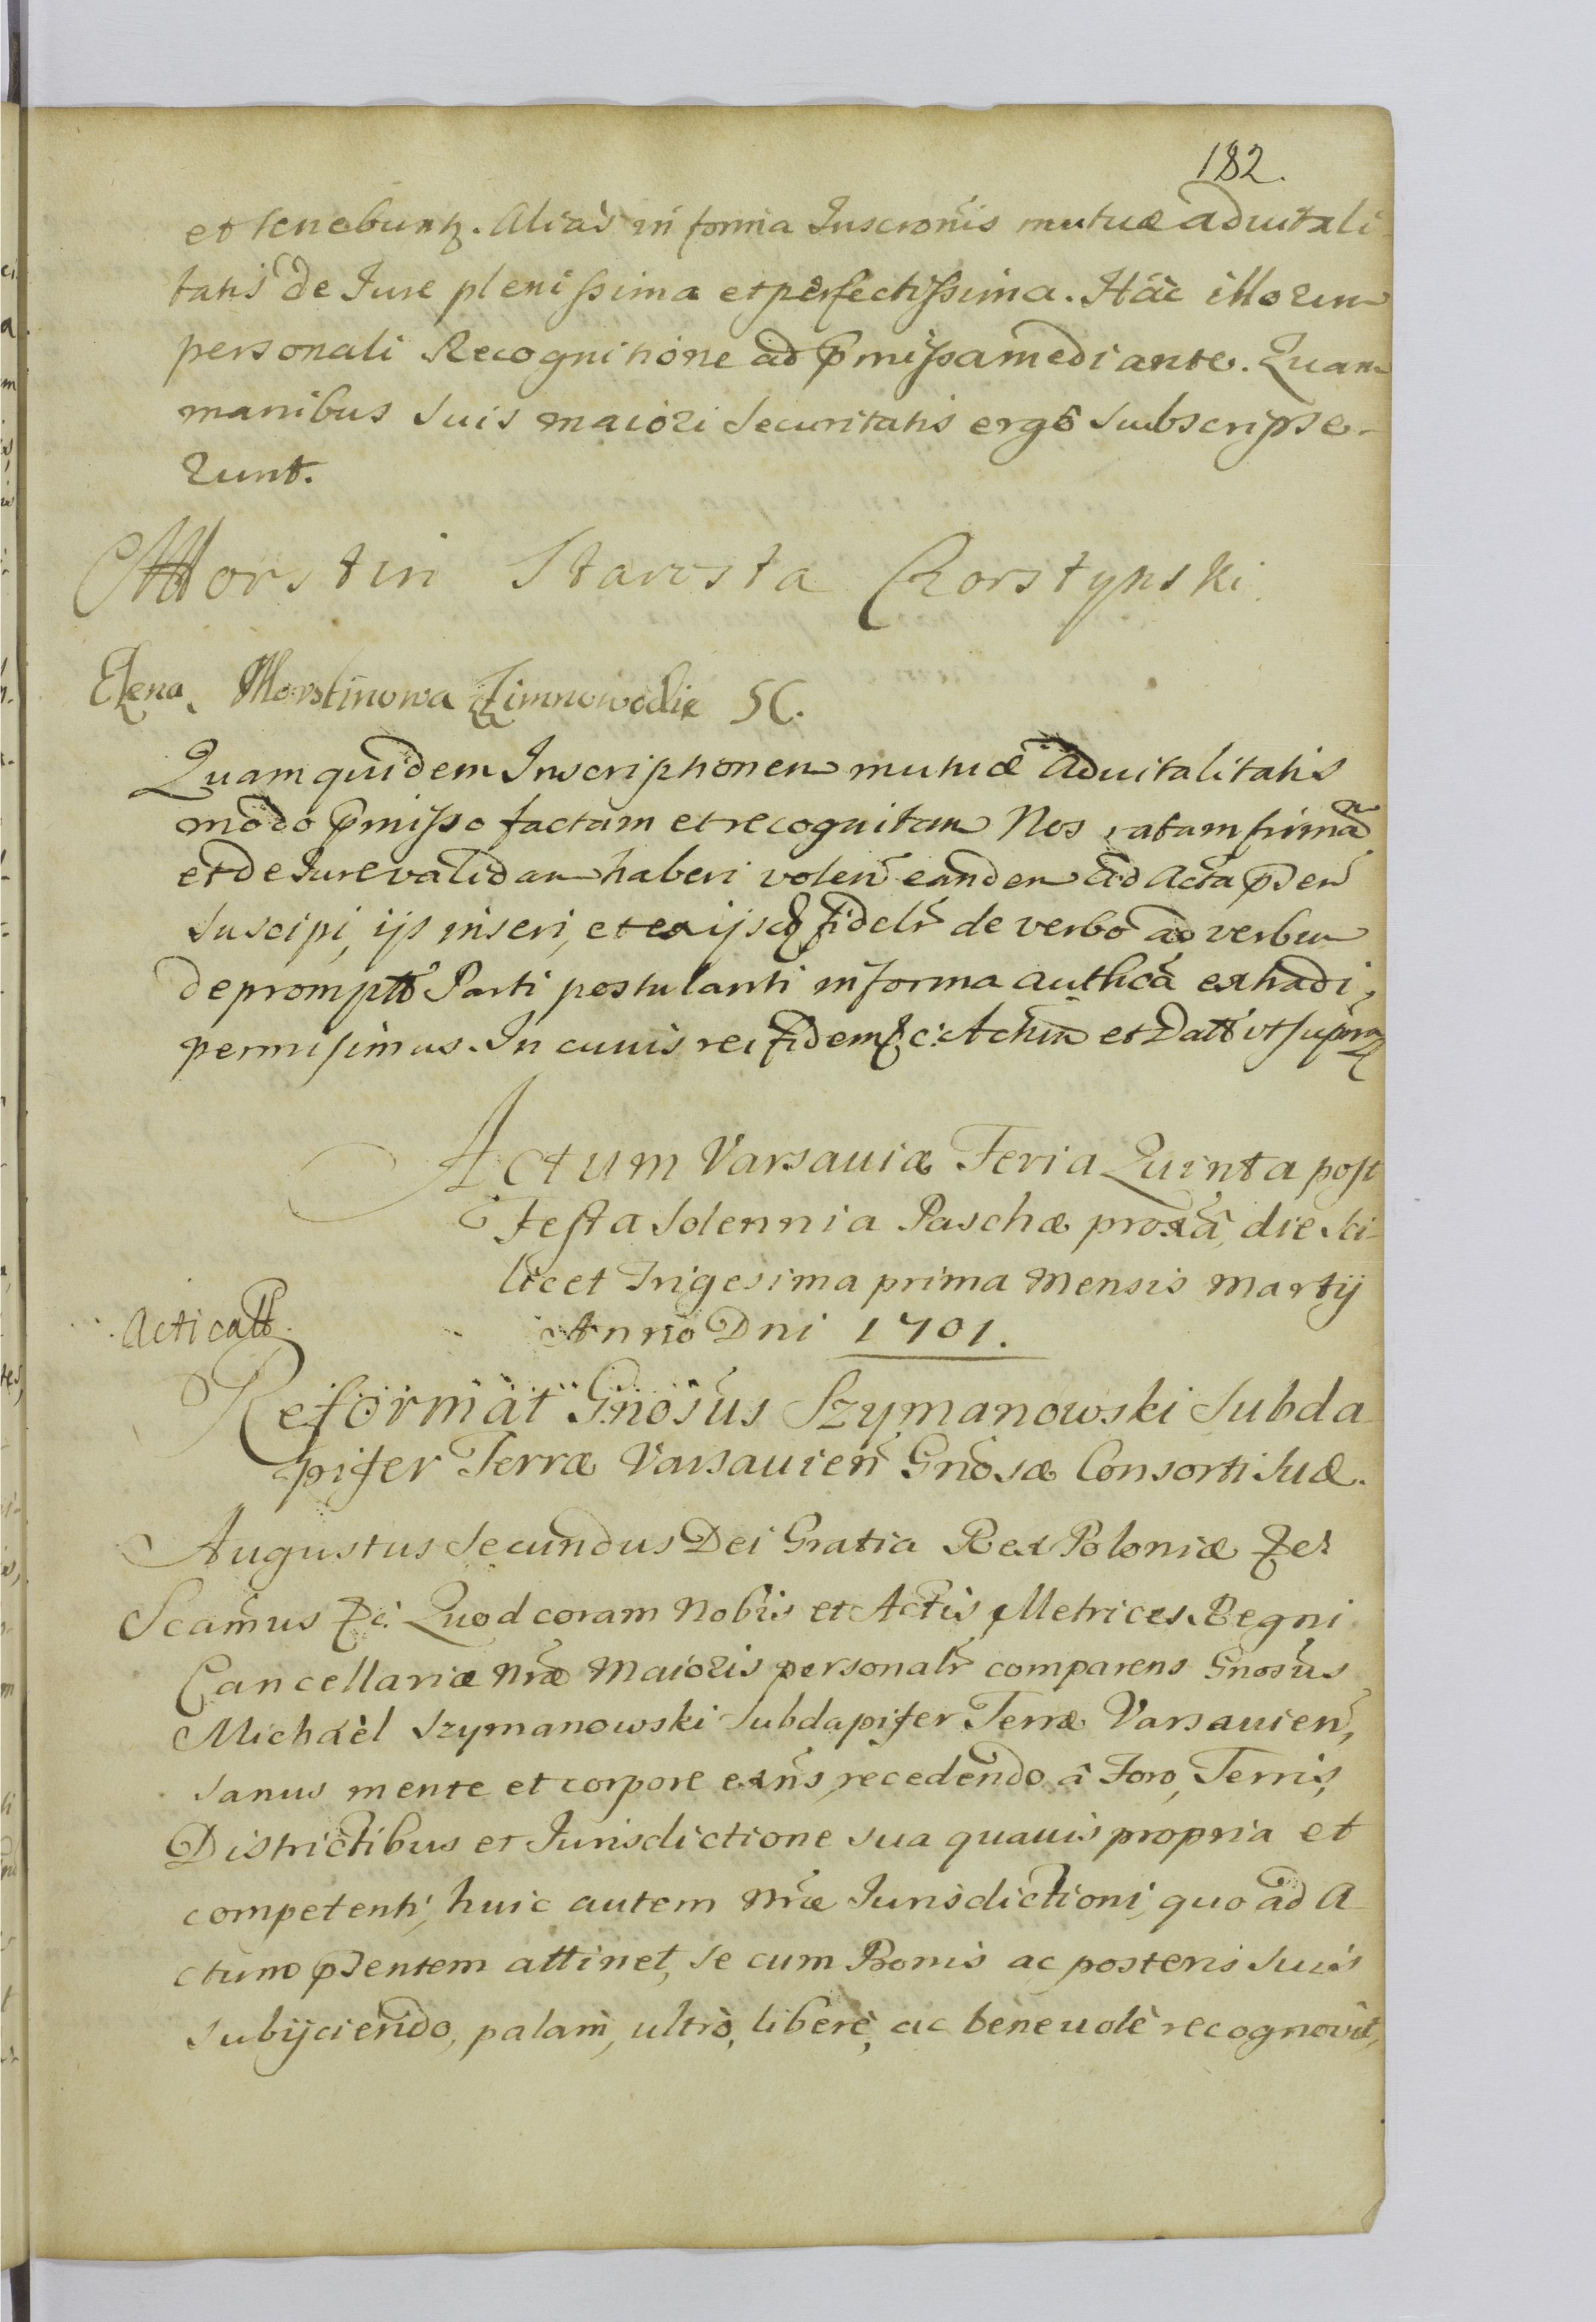 182.
et tenebuntʒ. Alias in forma Inscronis mutuæ aduitali-
tatis de Iure plenissima et perfectissima. Hac illorum
personali Recognitione ad p̄missa mediante. Quam
manibus suis maiori securitatis ergo subscripse-
runt.
Morstin Starosta
Elena Morstinowa Zimnowodzie SC.
Quam quidem Inscriptionem mutuæ aduitalitatis
modo p̄misso factam et recognitam Nos ratam firmã
et de Iure validam haberi volen̄ eandem ad Acta p̄sen̄
suscipi, ijs inseri, et ex ijsdē fidelr̄ de verbo ad verbum
depromptō Parti postulanti in forma authcã extradi,
permisimus. In cuius rei fidem &c: Actum et Datt ut supra
Actum Varsauiæ Feria Quinta post
Festa Solennia Paschæ proxâ, die sci-
licet Trigesima prima Mensis Martij
Anno Dni 1701.
Acticatt.
Reformat Gnosus Szymanowski Subda-
pifer Terræ Varsauien̄ Gnosæ Consorti suæ.
Augustus Secundus Dei Gratia Rex Poloniæ &c
Scamus &c. Quod coram Nobis et Actis Metrices Regni
Cancellariæ Nræ Maioris personalr̄ comparens Gnosus
Michaël Szymanowski Subdapifer Terræ Varsauien̄,
sanus mente et corpore exn̄s, recedendo â Foro, Terris,
Districtibus et Jurisdictione sua quauis propria et
competenti, huic autem Nræ Jurisdictioni, quo ad A-
ctum p̄sentem attinet, se cum Bonis ac posteris suis
subijciendo, palam, ultrò, liberè, ac beneuolè recognovit,